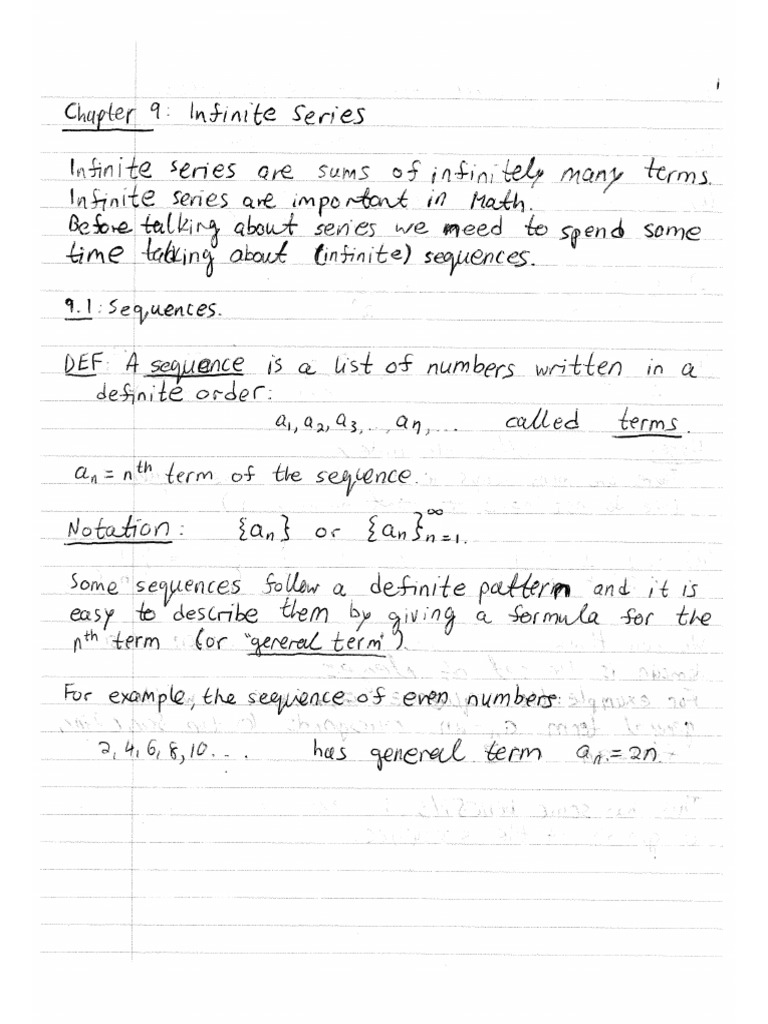 1
Chapter 9: Infinite Series
Infinite series are sums of infinitely many terms.
Infinite series are important in Math.
Before talking about series we need to spend some
time talking about (infinite) sequences.
9.1: Sequences.
DEF: A sequence is a list of numbers written in a
definite order:
a₁, a₂, a₃, ..., aₙ, ... called terms.
aₙ = nᵗʰ term of the sequence.
Notation: {aₙ} or {aₙ}ₙ₌₁^∞.
Some sequences follow a definite pattern and it is
easy to describe them by giving a formula for the
nᵗʰ term (or "general term").
For example, the sequence of even numbers:
2, 4, 6, 8, 10... has general term aₙ = 2n.